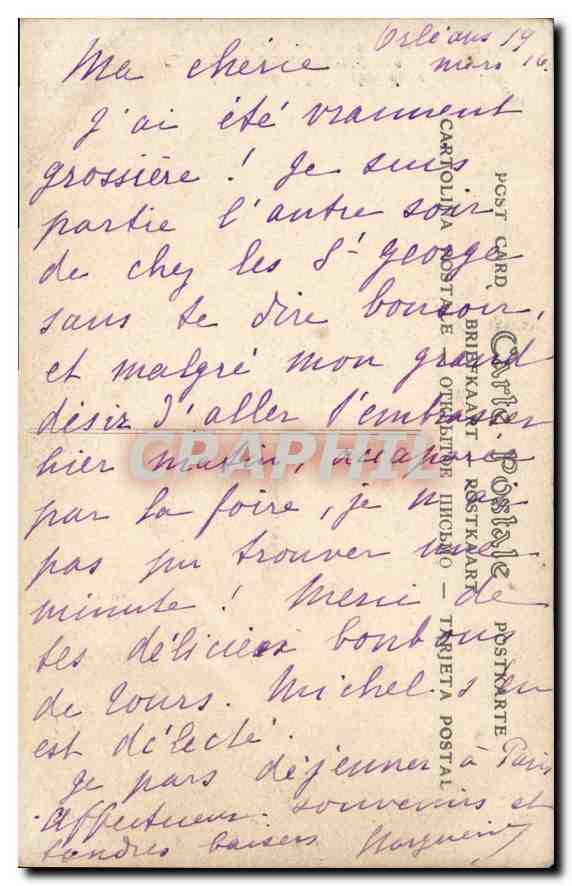 Orléans 19
mars 16.
Ma chérie
J'ai été vraiment
grossière ! Je suis
partie l'autre soir
de chez les St George
sans te dire bonsoir,
et malgré mon grand
désir d'aller t'embrasser
hier matin, accaparée
par la foire, je n'ai
pas pu trouver une
minute ! Merci de
tes délicieux bonbons
de Tours. Michel s'en
est délecté.
Je pars déjeuner à Paris
affectueux souvenirs et
tendres baisers
POST CARD
Carte Postale
POSTKARTE
BRIEFKAART — POSTKAART
CARTOLINA POSTALE — ОТКРЫТОЕ ПИСЬМО — TARJETA POSTAL
CRAPHIL